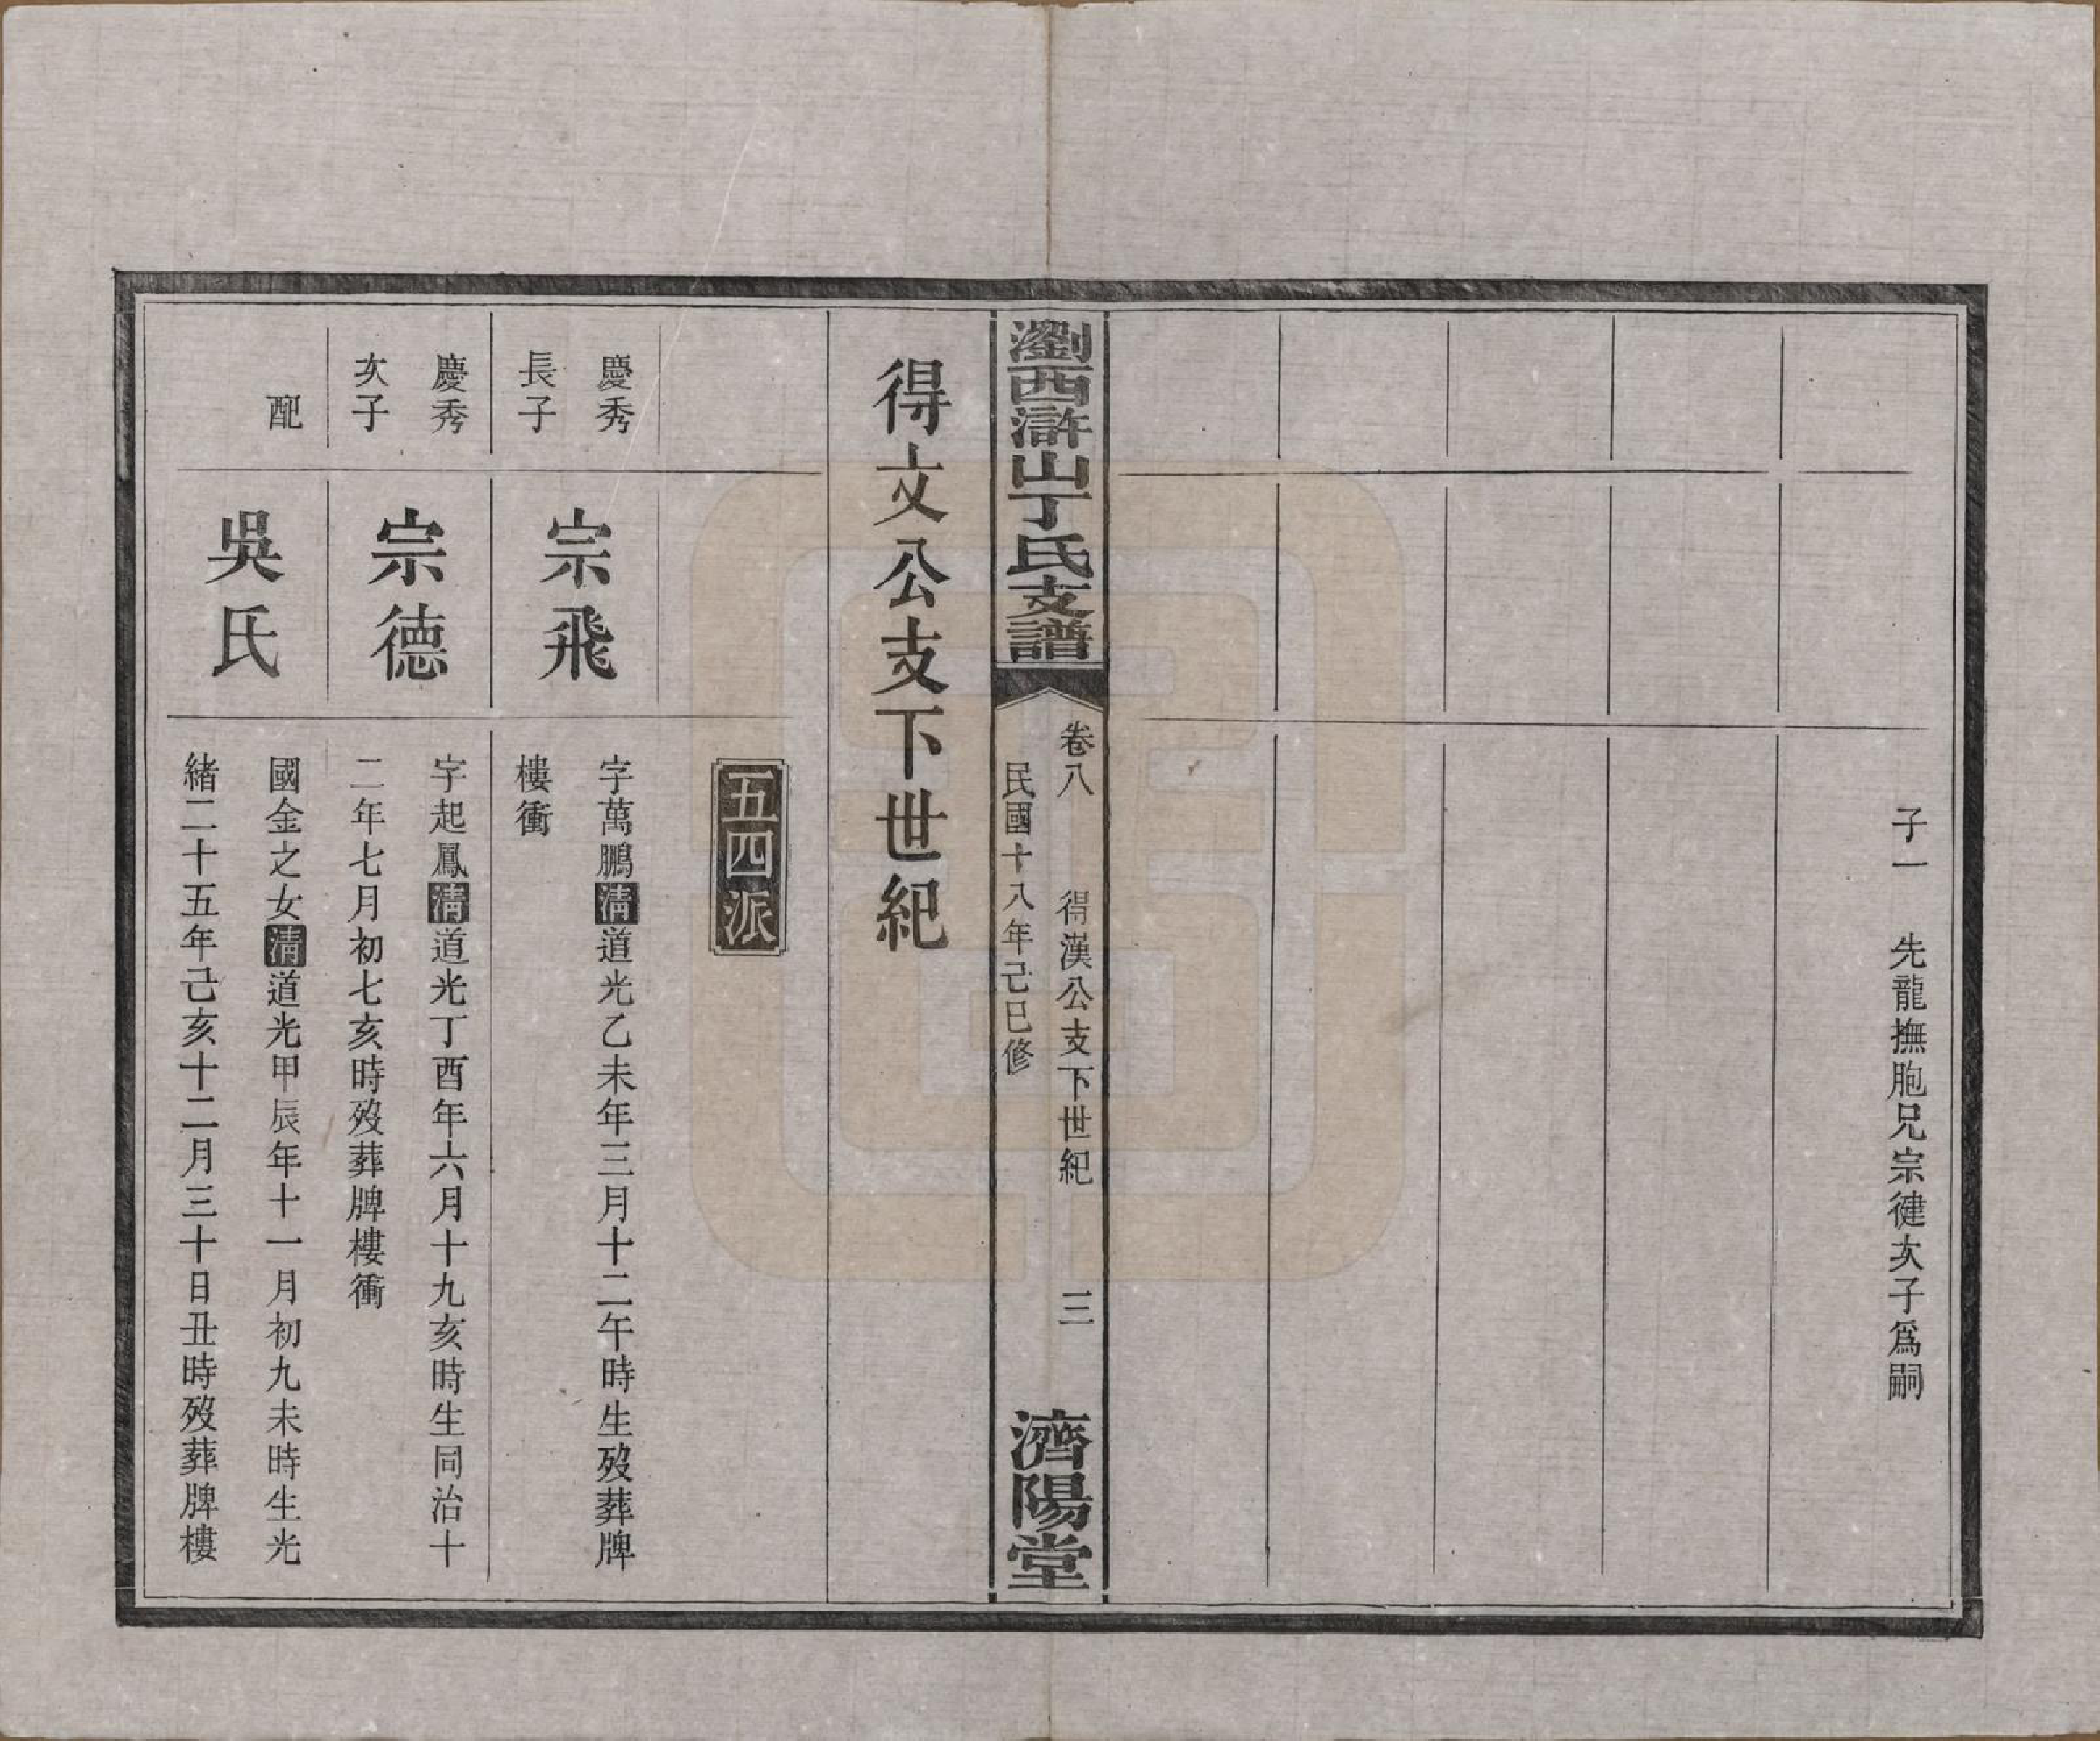 子一　先龍撫胞兄宗健次子爲嗣
瀏西滸山丁氏支譜
卷八　得漢公支下世紀　三
民國十八年己巳修
濟陽堂
得文公支下世紀
五四派
慶秀
長子
宗飛
字萬鵬清道光乙未年三月十二午時生歿葬牌
樓衝
慶秀
次子
宗德
字起鳳清道光丁酉年六月十九亥時生同治十
二年七月初七亥時歿葬牌樓衝
配
吳氏
國金之女清道光甲辰年十一月初九未時生光
緒二十五年己亥十二月三十日丑時歿葬牌樓